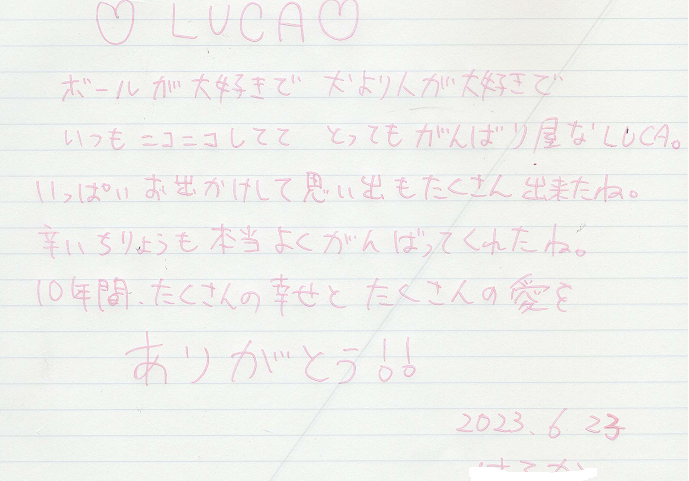 ♡ LUCA ♡
ボールが大好きで 犬より人が大好きで
いつもニコニコしてて とってもがんばり屋なLUCA。
いっぱいお出かけして思い出もたくさん出来たね。
辛いちりょうも本当よくがんばってくれたね。
10年間、たくさんの幸せとたくさんの愛を
ありがとう!!
2023.6 23